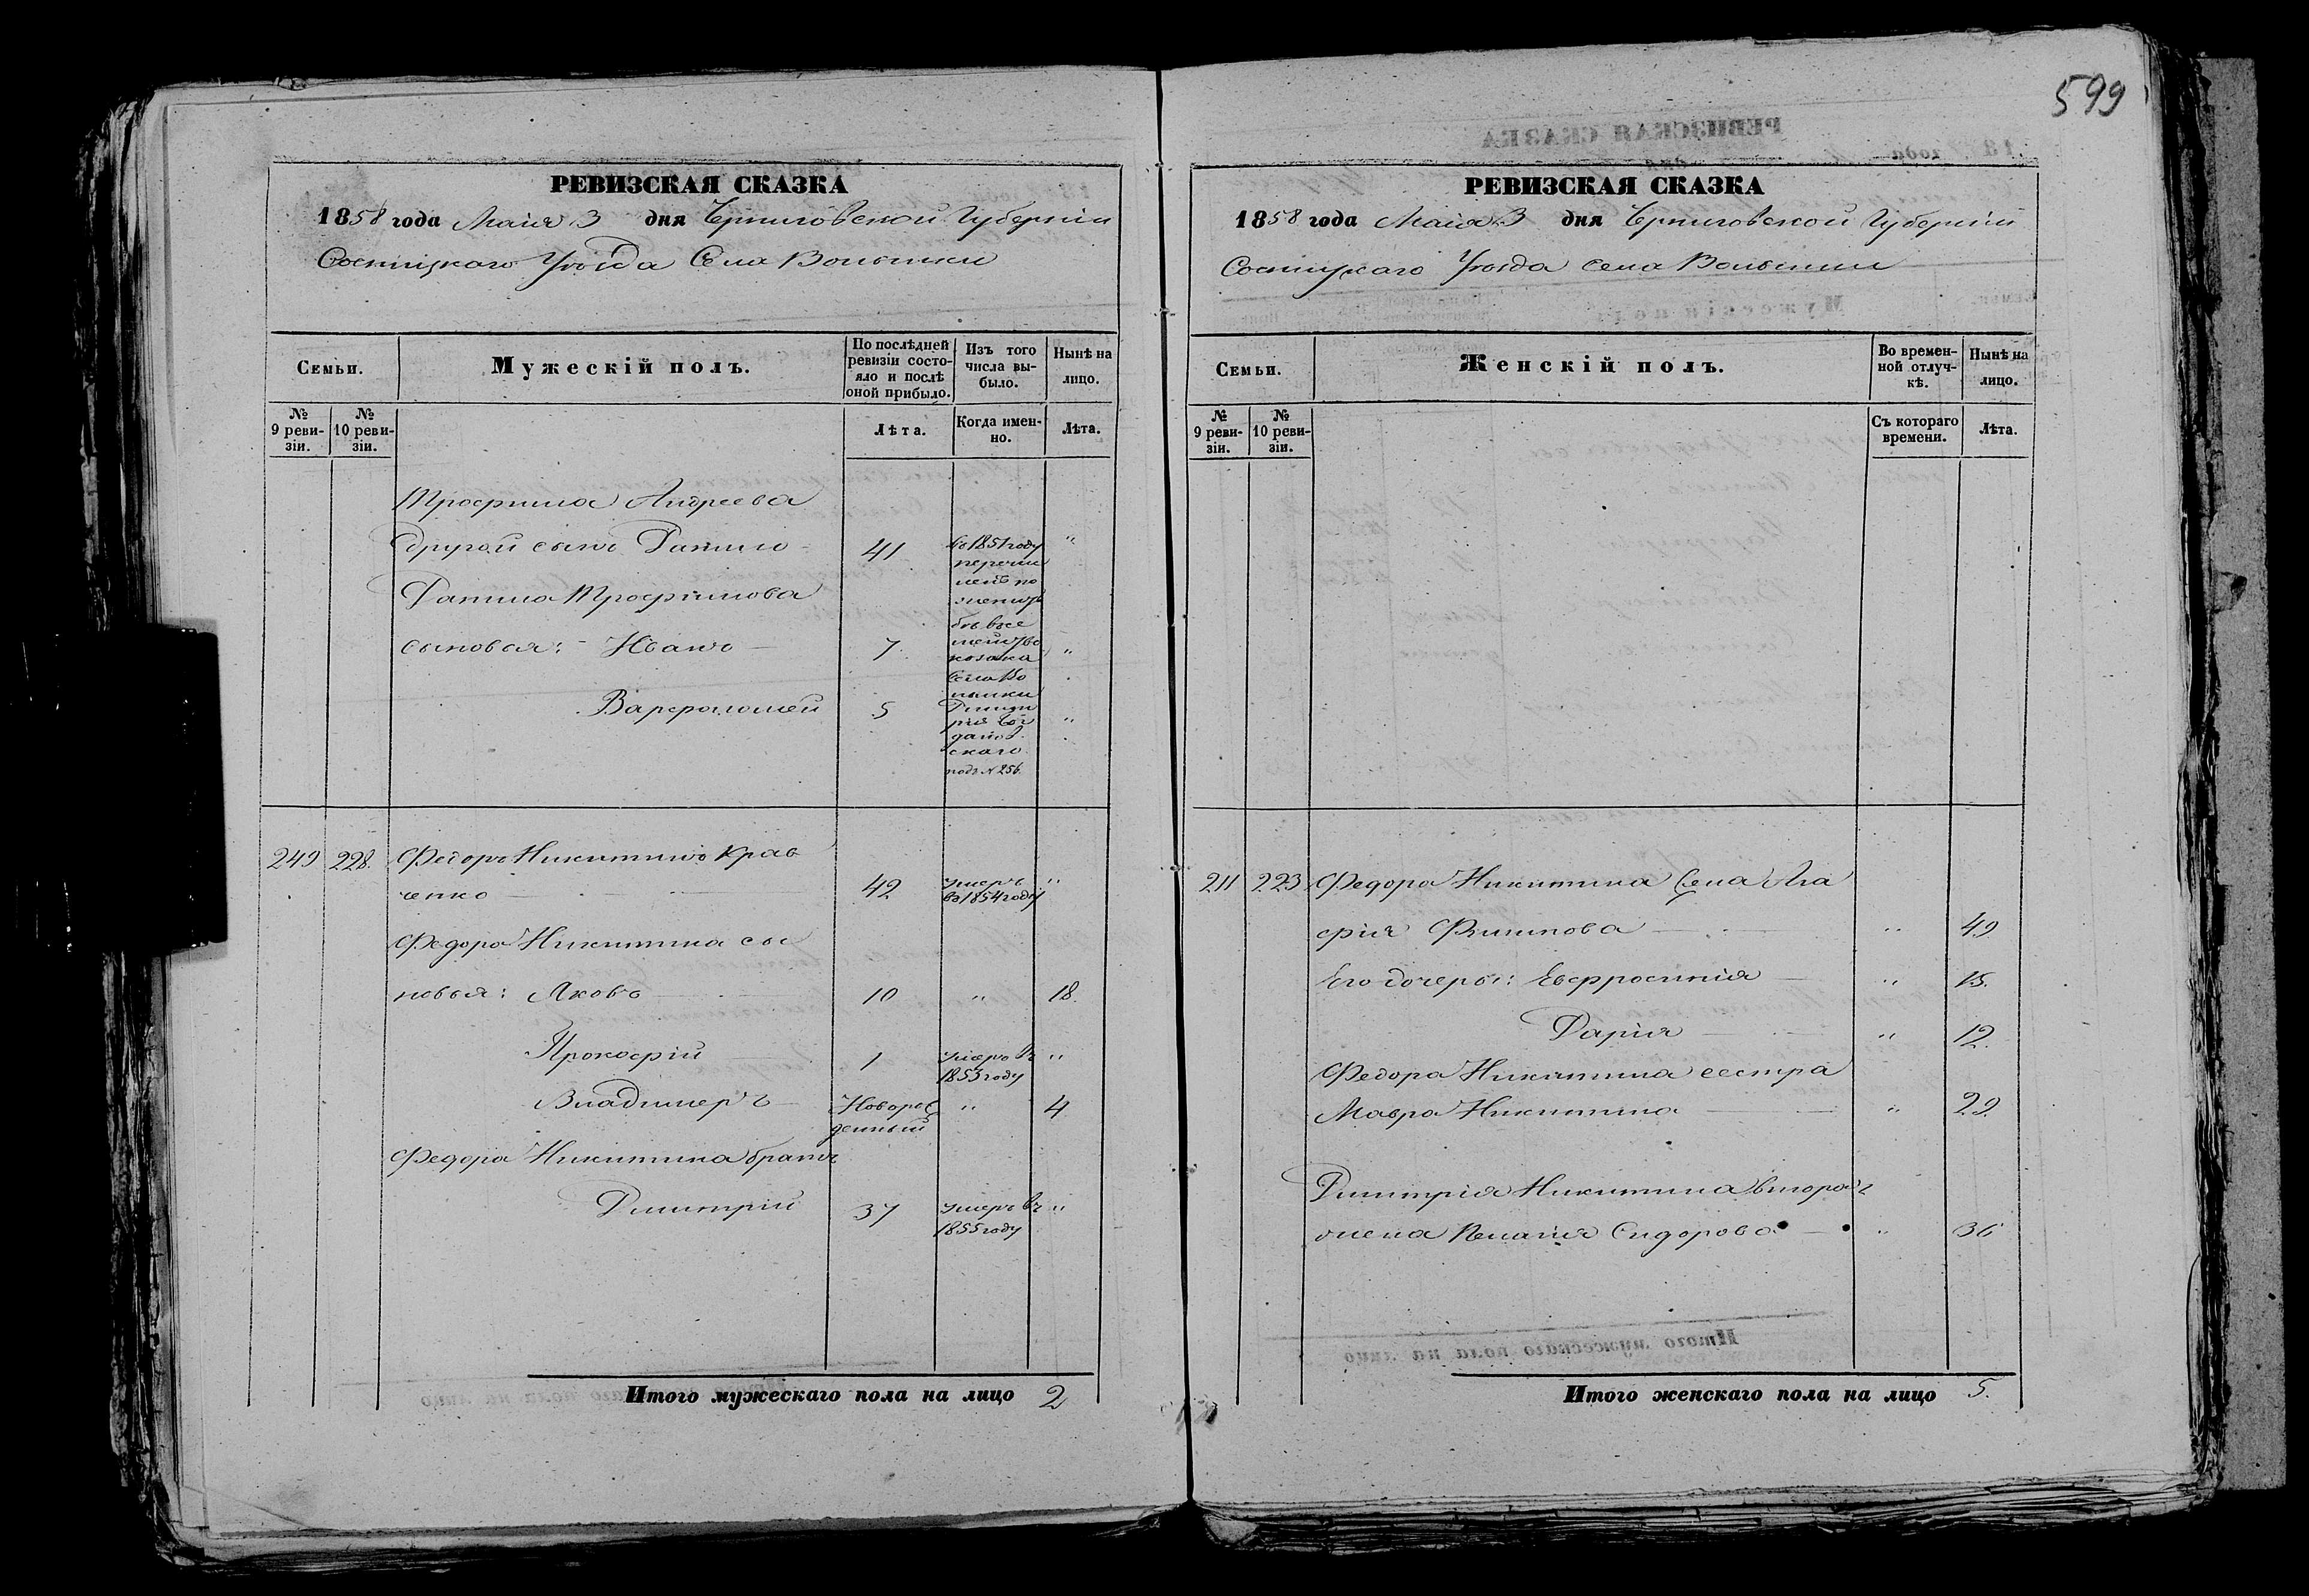 599
РЕВИЗСКАЯ СКАЗКА
1858 года Маія 3 дня Черниговской Губерніи
Сосницкаго Уѣзда Села Волынки
Семьи.
Мужескій полъ.
По послѣдней ревизіи состояло и послѣ оной прибыло.
Изъ того числа выбыло.
Нынѣ на лицо.
№ 9 ревизіи.
№ 10 ревизіи.
Лѣта.
Когда именно.
Лѣта.
Трофима Андреева
другой сынъ Данило 41 "
Данила Трофимова
сыновья: Иванъ 7 "
Варфоломей 5 "
въ 1851 году
перечис
ленъ по
семей
козака
Села Во
лынки
Дмит
рія Бог
данов
скаго
подъ № 256.
249 228. Федоръ Никитинъ Крав
ченко 42 умеръ въ 1854 году "
Федора Никитина сы
новья: Яковъ 10 " 18.
Прокофій 1 умеръ въ 1853 году "
Владимеръ Новорож денный " 4
Федора Никитина братъ
Дмитрій 37 умеръ въ 1855 году "
Итого мужескаго пола на лицо 2
РЕВИЗСКАЯ СКАЗКА
1858 года Маія 3 дня Черниговской Губерніи
Сосницкаго Уѣзда Села Волынки
Семьи.
Женскій полъ.
Во временной отлучкѣ.
Нынѣ на лицо.
№ 9 ревизіи.
№ 10 ревизіи.
Съ котораго времени.
Лѣта.
211 223 Федора Никитина жена Ага
фія Филипова " 49
Его дочеры: Евфросинія " 15.
Дарія " 12.
Федора Никитина сестра
Мавра Никитина " 29.
Димитрія Никитина вторая
жена Пелагія Сидорова " 36
Итого женскаго пола на лицо 5.